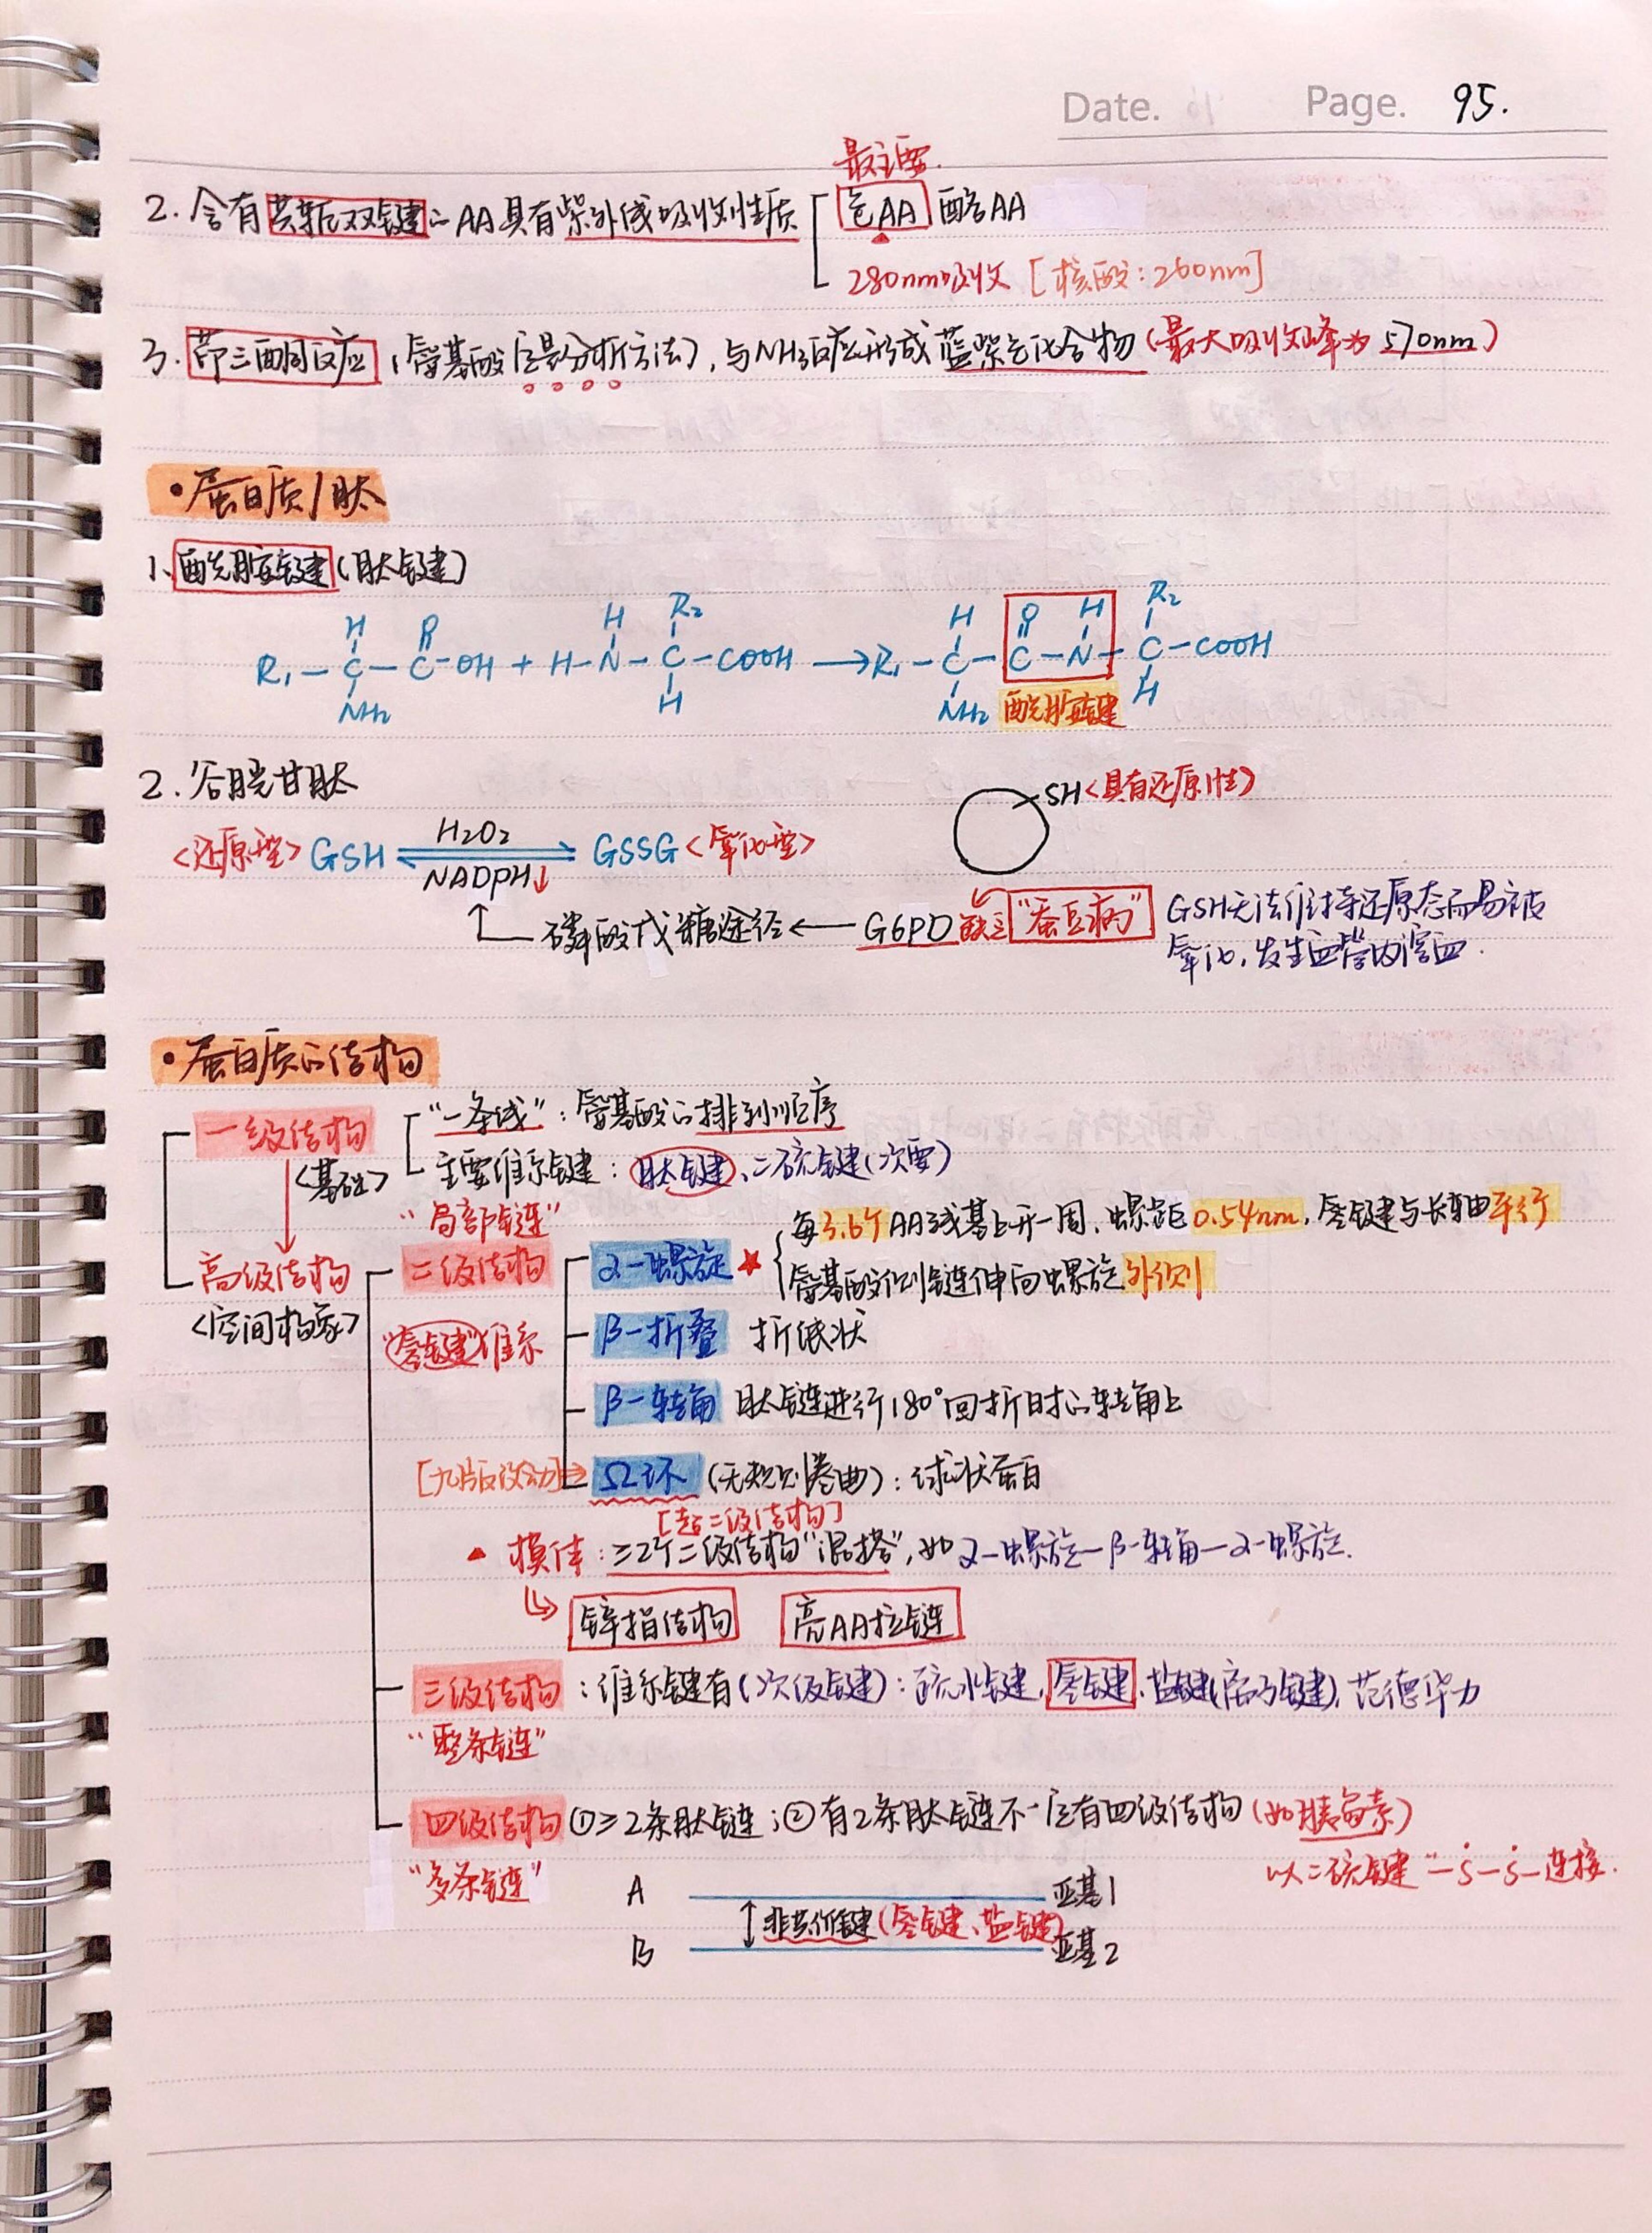 Date. Page. 95.
最主要.
2. 含有共轭双键的AA具有紫外线吸收性质 色AA 酪AA
280nm吸收 [核酸:260nm]
3. 茚三酮反应 (氨基酸定量分析方法), 与NH3反应形成蓝紫色化合物 (最大吸收峰为570nm)
·蛋白质/肽
1、酰胺键 (肽键)
H O H R₂ H O H R₂
R₁—C—C—OH + H—N—C—COOH →R₁—C—C—N—C—COOH
NH₂ H NH₂ 酰胺键 H
2. 谷胱甘肽
SH<具有还原性>
<还原型> GSH H₂O₂ GSSG <氧化型>
NADPH↓
磷酸戊糖途径 ← G6PD 缺乏 "蚕豆病" GSH无法维持还原态而易被
氧化, 发生血管内溶血.
·蛋白质的结构
一级结构 "一条线": 氨基酸的排列顺序
<基础> 主要维系键: 肽键、二硫键(次要)
"局部链"
每3.6个AA残基上升一周, 螺距0.54nm, 氢键与长轴平行
高级结构 二级结构 α-螺旋 ★ 氨基酸侧链伸向螺旋外侧
<空间构象> "氢键"维系 β-折叠 折纸状
β-转角 肽链进行180°回折时的转角上
[九版改动]⇒ Ω环 (无规则卷曲): 球状蛋白
[超二级结构]
▲ 模体: ≥2个二级结构"混搭", 如α-螺旋—β-转角—α-螺旋.
↳ 锌指结构 亮AA拉链
三级结构: 维系键有(次级键): 疏水键, 氢键、盐键(离子键), 范德华力
"整条链"
四级结构 ①≥2条肽链; ②有2条肽链不一定有四级结构 (如胰岛素)
"多条链" 以二硫键 "—S—S—连接.
A 亚基1
↕非共价键(氢键、盐键)
B 亚基2